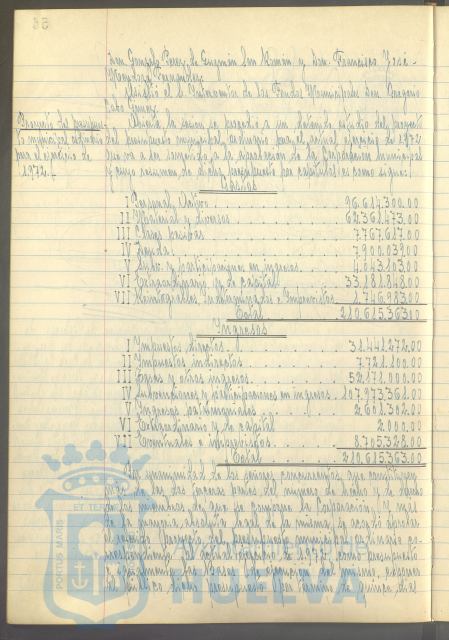 Don Gonzalo Perez de Guzmán San Román y Don Francisco José
Mendoza Fernández.
Asistió el S. Interventor de los Fondos Municipales Don
Proyecto del presupues-
to municipal ordinario
para el ejercicio de
1972.
Abierta la sesión se procedió a un detenido estudio del proyecto
del presupuesto municipal ordinario para el actual ejercicio de 1972
que va a ser sometido a la aprobación de la Corporación Municipal
y cuyo resumen de dicho presupuesto por capítulos es como sigue:
Gastos
I Personal Activo 96.614.300.00
II Material y diversos 62.361.473.00
III Clases pasivas 7.767.617.00
IV Deuda 7.900.039.00
V Subv. y participaciones en ingresos 4.043.103.00
VI Extraordinario y de capital 33.181.848.00
VII Reintegrables, Indeterminados e Imprevistos 1.746.983.00
Total 210.615.363.00
Ingresos
I Impuestos directos 31.441.272.00
II Impuestos indirectos 7.721.100.00
III Tasas y otros ingresos 52.171.000.00
IV Subvenciones y participaciones en ingresos 107.973.361.00
V Ingresos patrimoniales 2.601.302.00
VI Extraordinario y de capital 2.000.00
VII Eventuales e imprevistos 8.705.328.00
Total 210.615.363.00
Por unanimidad de los señores concurrentes, que constituyen
más de las dos terceras partes del número de hecho y de derecho
de los miembros de que se compone la Corporación, y más
de la mayoría absoluta legal de la misma, se acordó aprobar
el citado proyecto del presupuesto municipal ordinario co-
rrespondiente al actual ejercicio de 1972, como presupuesto
e igualmente las Bases de ejecución del mismo, exponer
al público dicho presupuesto por término de quince días
PORTUS MARIS
ET TERRAE
HUELVA